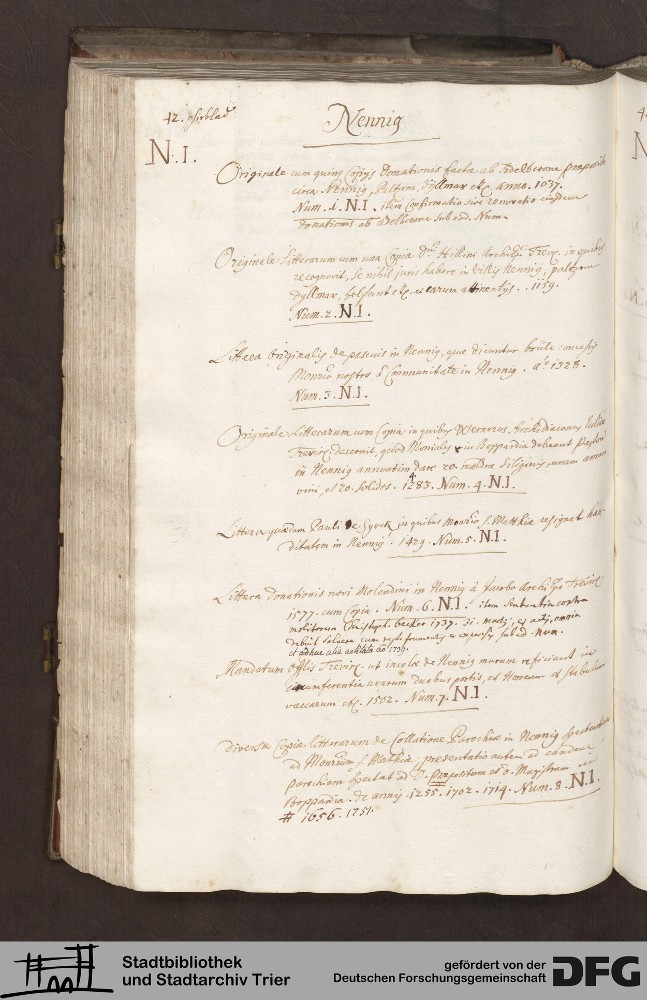 Nennig
N.I.
Originale cum quinq Copijs Donationis facta ab Adelberone praeposito
circa Nennig, Paltern, Dyllmar etc. anno. 1037.
Num. 1. N.I. item Confirmatio sive renovatio eiusdem
donationis ab Adelberone sub eod. Num.
Originale Litterarum cum una Copia D. Hillini Archiepi Trevir. in quibus
recognovit, se nihil juris habere in Villis Nennig, paltern
Dyllmar, etc. earum attinentijs. 1159.
Num. 2. N.I.
Littera originalis de pascuis in Nennig, quae dicuntur brüle concessis
Monrio nostro à Communitate in Nennig. aº 1328.
Num. 3. N.I.
Originale Litterarum cum Copia in quibus Wernerus Archidiaconus
Trevir. decernit, quod Moniales in Boppardia debeant pastori
in Nennig annuatim dare 20. maldra siliginis, unam amam
vini, et 20. solidos. 1283. Num. 4. N.I.
Littera quaedam Pauli de Syrck in quibus Monrio S. Matthiae resignat haere-
ditatem in Nennig. 1429. Num. 5. N.I.
Littera Donationis novi Molendini in Nennig à Jacobo Archiepo Trevir.
1577. cum Copia. Num. 6. N.I. item Sententia contra
molitorem Christoph. Becker 1737. et omnia
debuit solvere cum expensis sub ead. Num.
et adhuc alia 1739.
Mandatum Offlis Trevir. ut incolae de Nennig murum reficiant in
circumferentia duobus portis, et Horreum et stabulum
vaccarum etc. 1502. Num. 7. N.I.
Diversae Copiae litterarum de Collatione Parochiae in Nennig spectantis
ad Monrium S. Matthiae, praesentatio autem ad eandem
parochiam spectat ad D. Praepositum et D. Magistram in
Boppardia. de annis 1255. 1702. 1714. Num. 8. N.I.
# 1656. 1751.
Stadtbibliothek
und Stadtarchiv Trier
gefördert von der
Deutschen Forschungsgemeinschaft
DFG